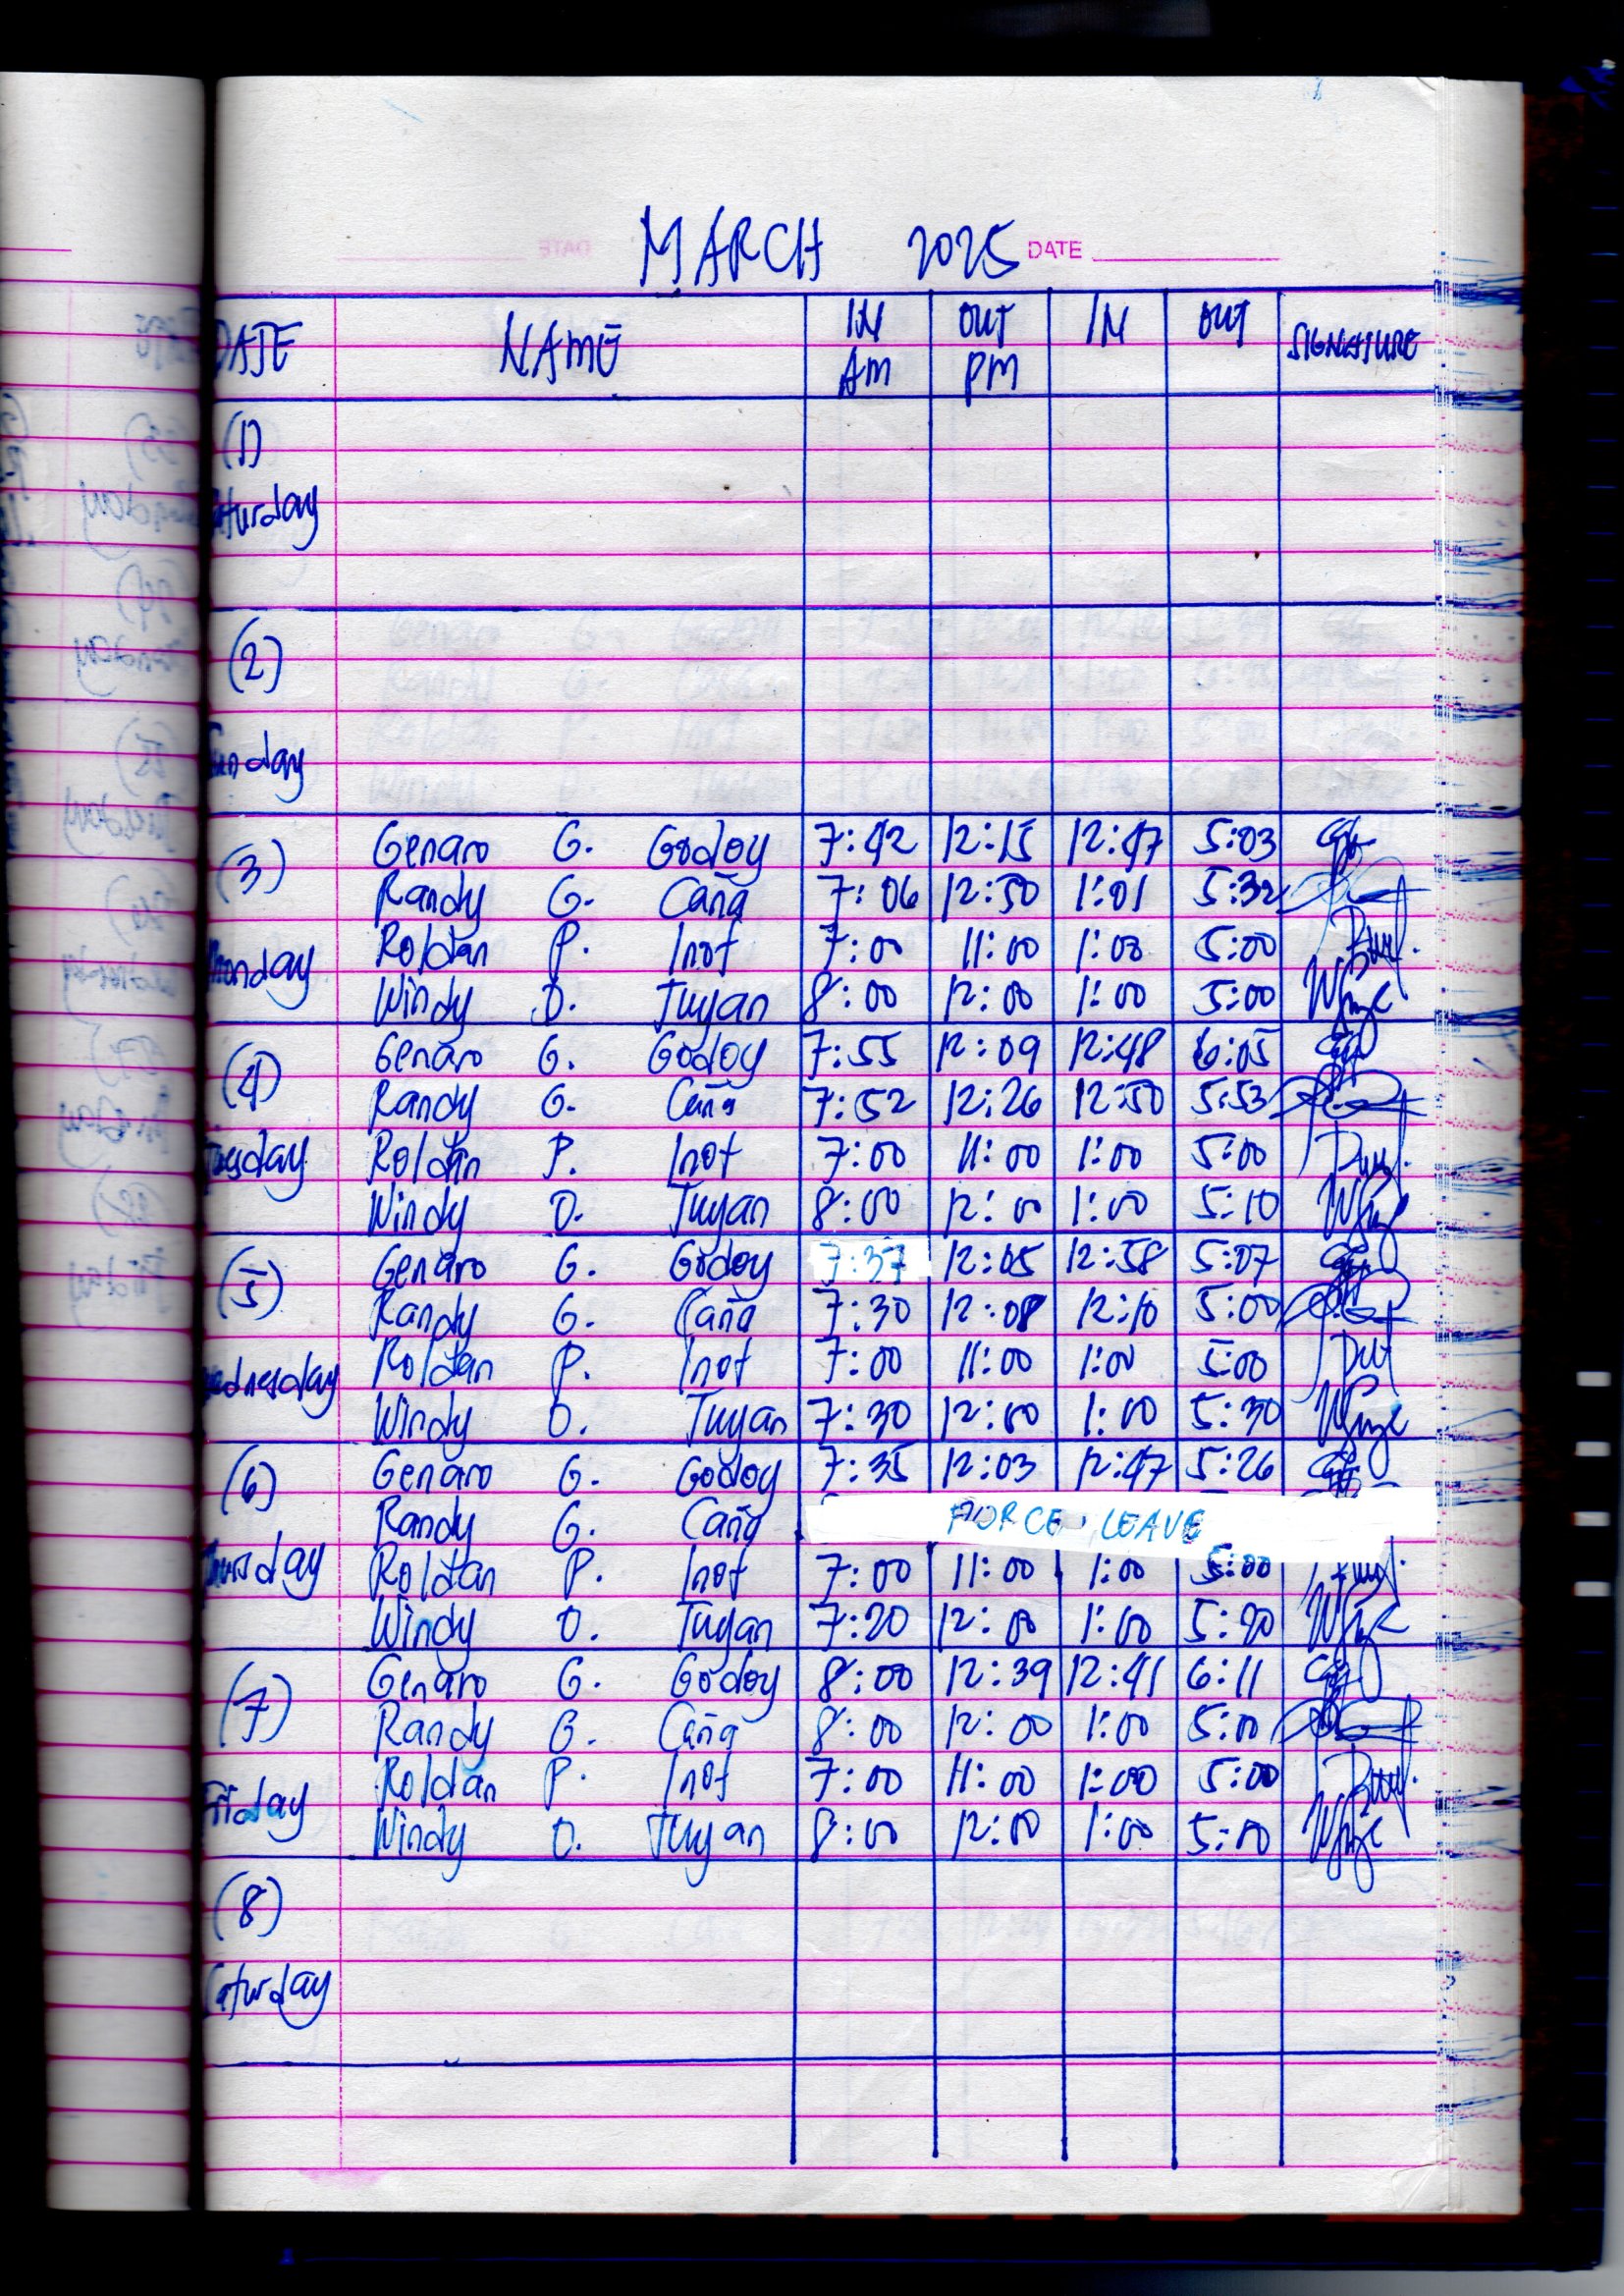 MARCH 2025 DATE
DATE NAME IN AM OUT PM IN OUT SIGNATURE
(1)
aturday
(2)
Sunday
(3) Genaro G. Godoy 7:42 12:15 12:47 5:03
Randy G. Caña 7:06 12:50 1:01 5:32
Monday Roldan P. Inot 7:00 11:00 1:00 5:00
Windy O. Tuyan 8:00 12:00 1:00 5:00
(4) Genaro G. Godoy 7:55 12:09 12:48 6:05
Randy G. Caña 7:52 12:26 12:50 5:53
Tuesday Roldan P. Inot 7:00 11:00 1:00 5:00
Windy O. Tuyan 8:00 12:00 1:00 5:10
(5) Genaro G. Godoy 7:37 12:05 12:58 5:07
Randy G. Caña 7:30 12:08 12:10 5:00
Wednesday Roldan P. Inot 7:00 11:00 1:00 5:00
Windy O. Tuyan 7:30 12:00 1:00 5:30
(6) Genaro G. Godoy 7:35 12:03 12:47 5:26
Randy G. Caña FORCE LEAVE
Thursday Roldan P. Inot 7:00 11:00 1:00 5:00
Windy O. Tuyan 7:20 12:00 1:00
(7) Genaro G. Godoy 8:00 12:39 12:41 6:11
Randy G. Caña 8:00 12:00 1:00 5:00
Friday Roldan P. Inot 7:00 11:00 1:00 5:00
Windy O. Tuyan 8:00 12:00 1:00 5:00
(8)
Saturday